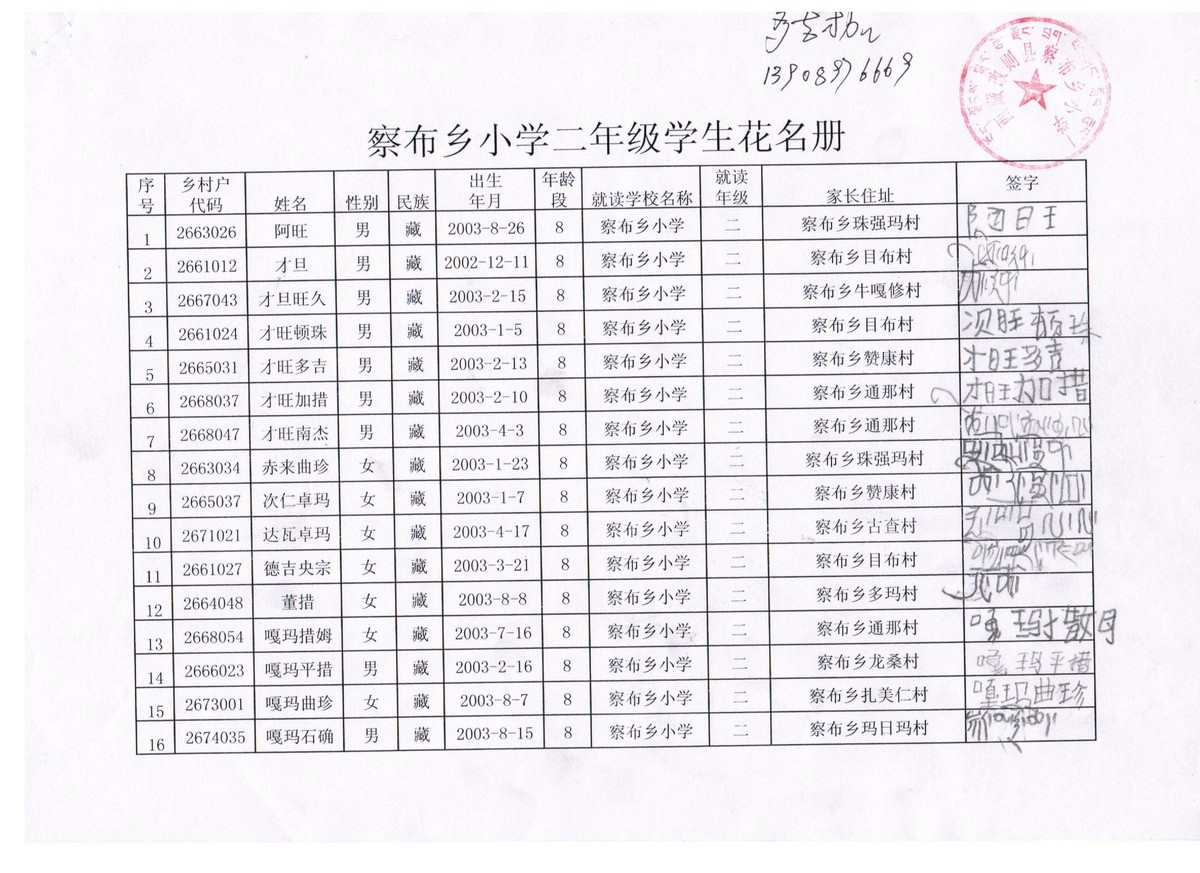 13908976669
西藏改则县察布乡小学
察布乡小学二年级学生花名册
序号 乡村户代码 姓名 性别 民族 出生年月 年龄段 就读学校名称 就读年级 家长住址 签字
1 2663026 阿旺 男 藏 2003-8-26 8 察布乡小学 二 察布乡珠强玛村
2 2661012 才旦 男 藏 2002-12-11 8 察布乡小学 二 察布乡目布村
3 2667043 才旦旺久 男 藏 2003-2-15 8 察布乡小学 二 察布乡牛嘎修村
4 2661024 才旺顿珠 男 藏 2003-1-5 8 察布乡小学 二 察布乡目布村
5 2665031 才旺多吉 男 藏 2003-2-13 8 察布乡小学 二 察布乡赞康村
6 2668037 才旺加措 男 藏 2003-2-10 8 察布乡小学 二 察布乡通那村 才旺加措
7 2668047 才旺南杰 男 藏 2003-4-3 8 察布乡小学 二 察布乡通那村
8 2663034 赤来曲珍 女 藏 2003-1-23 8 察布乡小学 二 察布乡珠强玛村
9 2665037 次仁卓玛 女 藏 2003-1-7 8 察布乡小学 二 察布乡赞康村
10 2671021 达瓦卓玛 女 藏 2003-4-17 8 察布乡小学 二 察布乡古查村
11 2661027 德吉央宗 女 藏 2003-3-21 8 察布乡小学 二 察布乡目布村
12 2664048 董措 女 藏 2003-8-8 8 察布乡小学 二 察布乡多玛村
13 2668054 嘎玛措姆 女 藏 2003-7-16 8 察布乡小学 二 察布乡通那村
14 2666023 嘎玛平措 男 藏 2003-2-16 8 察布乡小学 二 察布乡龙桑村 嘎玛平措
15 2673001 嘎玛曲珍 女 藏 2003-8-7 8 察布乡小学 二 察布乡扎美仁村 嘎玛曲珍
16 2674035 嘎玛石确 男 藏 2003-8-15 8 察布乡小学 二 察布乡玛日玛村